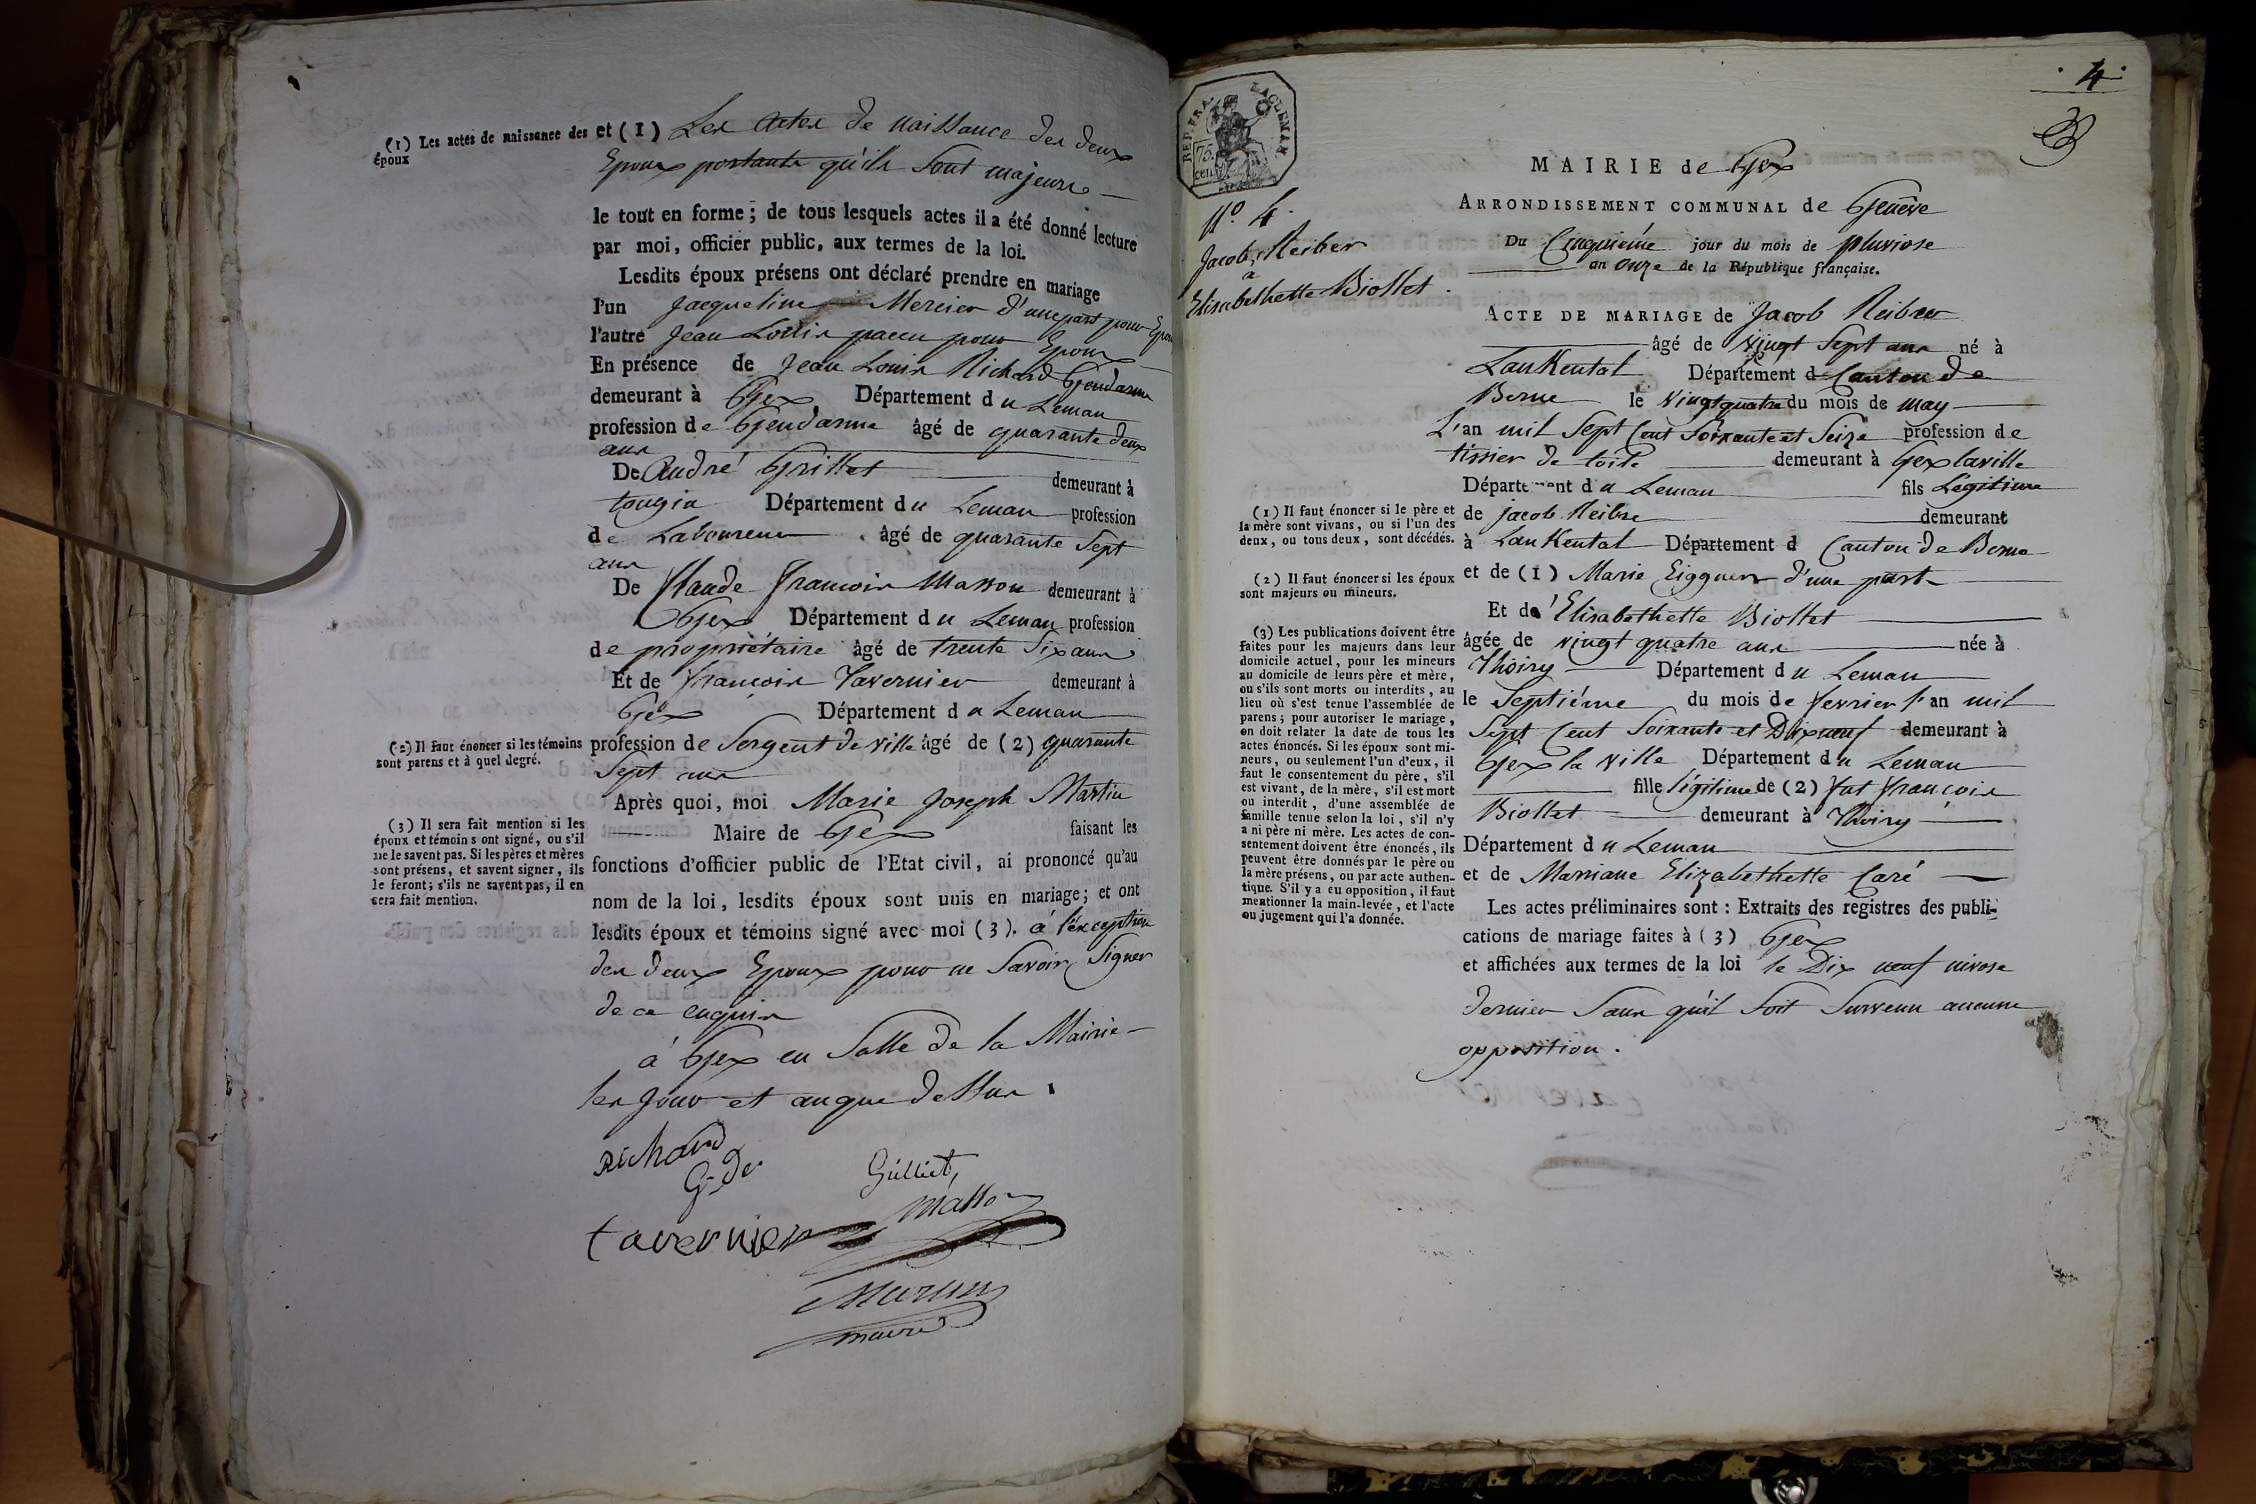 (1) Les actes de naissance des
époux
et (1) Les actes de naissance des deux
Epoux portants qu'ils sont majeurs
le tout en forme; de tous lesquels actes il a été donné lecture
par moi, officier public, aux termes de la loi.
Lesdits époux présens ont déclaré prendre en mariage
l'un Jacqueline Mercier d'une part pour Epoux
l'autre Jean Louis pour Epoux
En présence de Jean Louis Richard Gendarme
demeurant à Gex Département du Leman
profession de Gendarme âgé de quarante deux
ans
De André Grillet demeurant à
tougin Département du Leman profession
de Laboureur âgé de quarante Sept
ans
De Claude François Masson demeurant à
Gex Département du Leman profession
de propriétaire âgé de trente Six ans
Et de François Tavernier demeurant à
Gex Département du Leman
(2) Il faut énoncer si les témoins
sont parens et à quel degré.
profession de Sergent de ville âgé de (2) quarante
Sept ans
Après quoi, moi Marie Joseph Martin
Maire de Gex faisant les
(3) Il sera fait mention si les
époux et témoins ont signé, ou s'il
ne le savent pas. Si les pères et mères
sont présens, et savent signer, ils
le feront; s'ils ne savent pas, il en
sera fait mention.
fonctions d'officier public de l'Etat civil, ai prononcé qu'au
nom de la loi, lesdits époux sont unis en mariage; et ont
lesdits époux et témoins signé avec moi (3). à l'exception
des deux Epoux pour ne Savoir Signer
de ce enquis
à Gex en Salle de la Mairie
les Jour et an que dessus.
Richard
G-de
Grilliet
Masson
tavernier
Martin
maire
4
REP. FRA.
75.
cen.
N.º 4.
Jacob Reiber
a
Elisabethette Biollet.
MAIRIE de Gex
ARRONDISSEMENT COMMUNAL de Genêve
Du Cinquième jour du mois de pluviose
an onze de la République française.
ACTE DE MARIAGE de Jacob Reibre
âgé de Vingt Sept ans né à
LanKental Département d Canton de
Berne le Vingt quatre du mois de may
L'an mil Sept Cent Soixante et Seize profession de
tissier de toile demeurant à Gex la ville
Département du Leman fils Légitime
(1) Il faut énoncer si le père et
la mère sont vivans, ou si l'un des
deux, ou tous deux, sont décédés.
de jacob Reibre demeurant
à LanKental Département d Canton de Berne
(2) Il faut énoncer si les époux
sont majeurs ou mineurs.
et de (1) Marie Eigguer d'une part
Et de Elisabethette Biollet
(3) Les publications doivent être
faites pour les majeurs dans leur
domicile actuel, pour les mineurs
au domicile de leurs père et mère,
ou s'ils sont morts ou interdits, au
lieu où s'est tenue l'assemblée de
parens; pour autoriser le mariage,
on doit relater la date de tous les
actes énoncés. Si les époux sont mi-
neurs, ou seulement l'un d'eux, il
faut le consentement du père, s'il
est vivant, de la mère, s'il est mort
ou interdit, d'une assemblée de
famille tenue selon la loi, s'il n'y
a ni père ni mère. Les actes de con-
sentement doivent être énoncés, ils
peuvent être donnés par le père ou
la mère présens, ou par acte authen-
tique. S'il y a eu opposition, il faut
mentionner la main-levée, et l'acte
ou jugement qui l'a donnée.
âgée de vingt quatre ans née à
Thoiry Département du Leman
le Septiéme du mois de fevrier l'an mil
Sept Cent Soixante et Dixneuf demeurant à
Gex la ville Département du Leman
fille légitime de (2) fut françois
Biollet demeurant à Thoiry
Département du Leman
et de Marriane Elizabethette Caré
Les actes préliminaires sont : Extraits des registres des publi-
cations de mariage faites à (3) Gex
et affichées aux termes de la loi le Dix neuf nivose
dernier Sans qu'il Soit Survenu aucune
opposition.